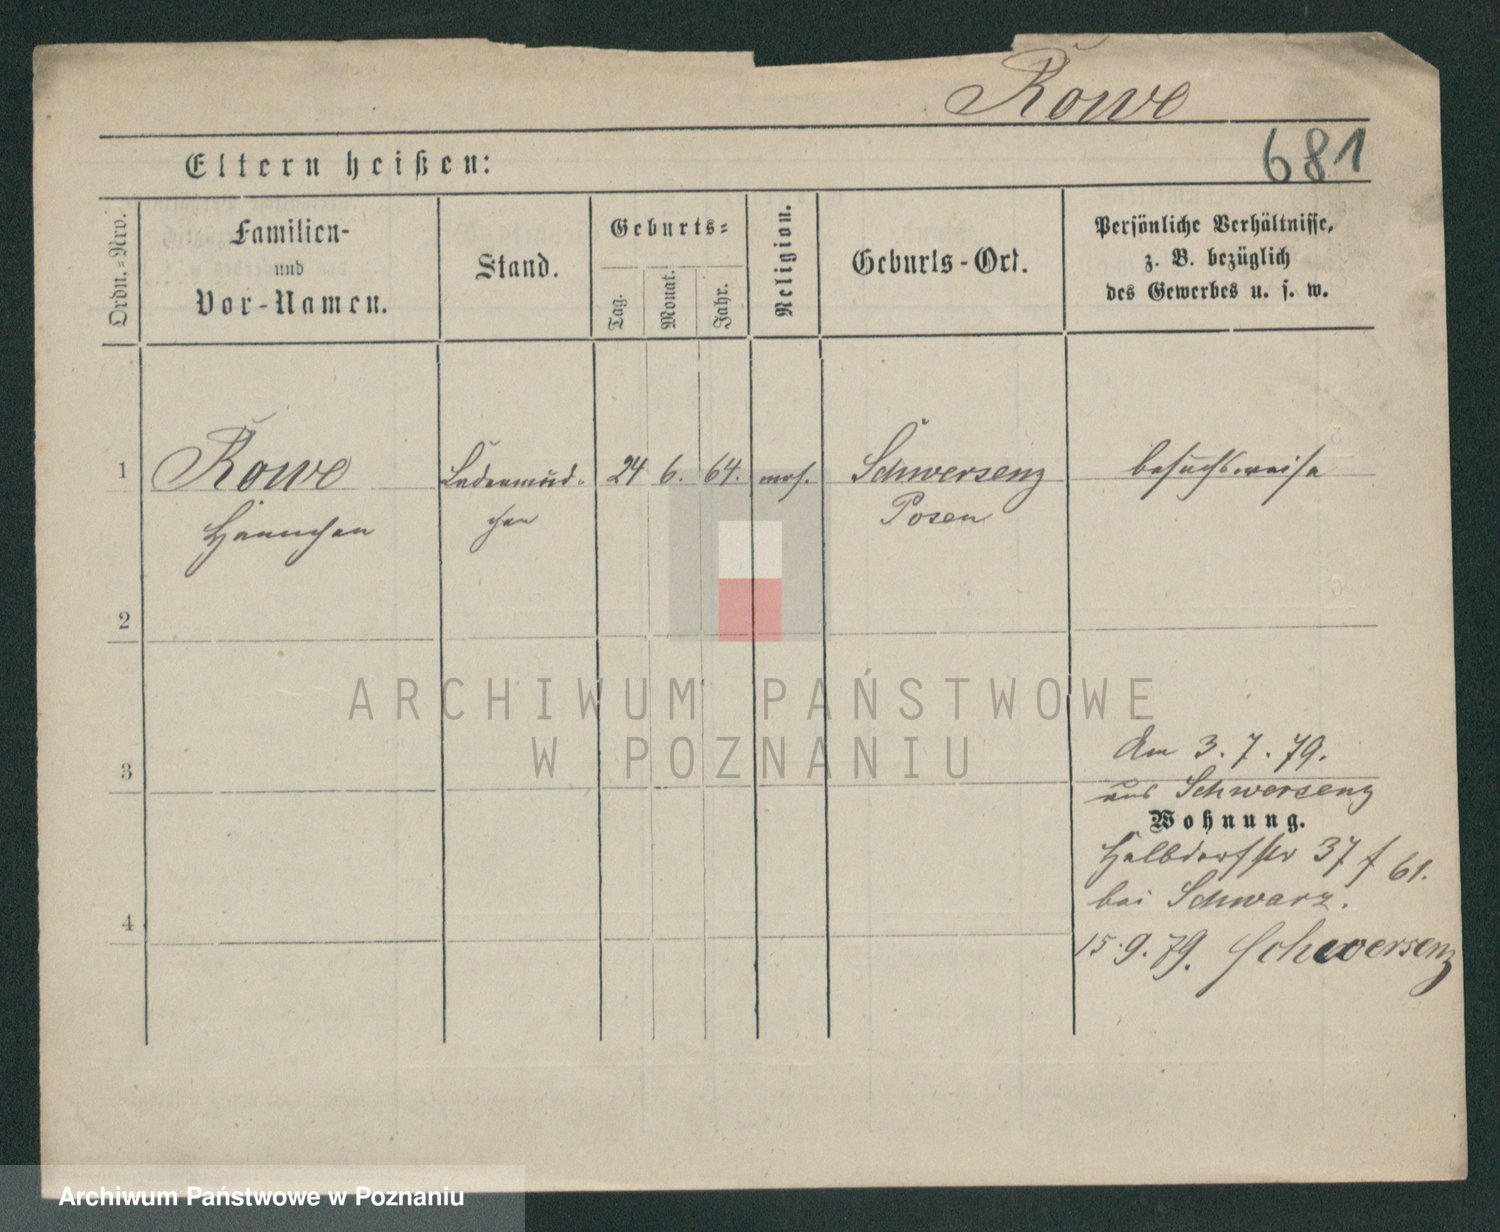 Rowe
681
Eltern heißen:
Ordn.-Nro.
Familien-
und
Vor-Namen.
Stand.
Geburts-
Tag.
Monat.
Jahr.
Religion.
Geburts-Ort.
Persönliche Verhältnisse,
z. B. bezüglich
des Gewerbes u. s. w.
1 Rowe Ladenmäd- 24 6. 64. mos. Schwersenz besuchsweise
Hannchen chen Posen
2
ARCHIWUM PAŃSTWOWE
W POZNANIU
Am 3. 7. 79.
3
aus Schwersenz
Wohnung.
Halbdorfstr 37 f 61.
bei Schwarz.
4
15.9.79. Schwersenz
Archiwum Państwowe w Poznaniu